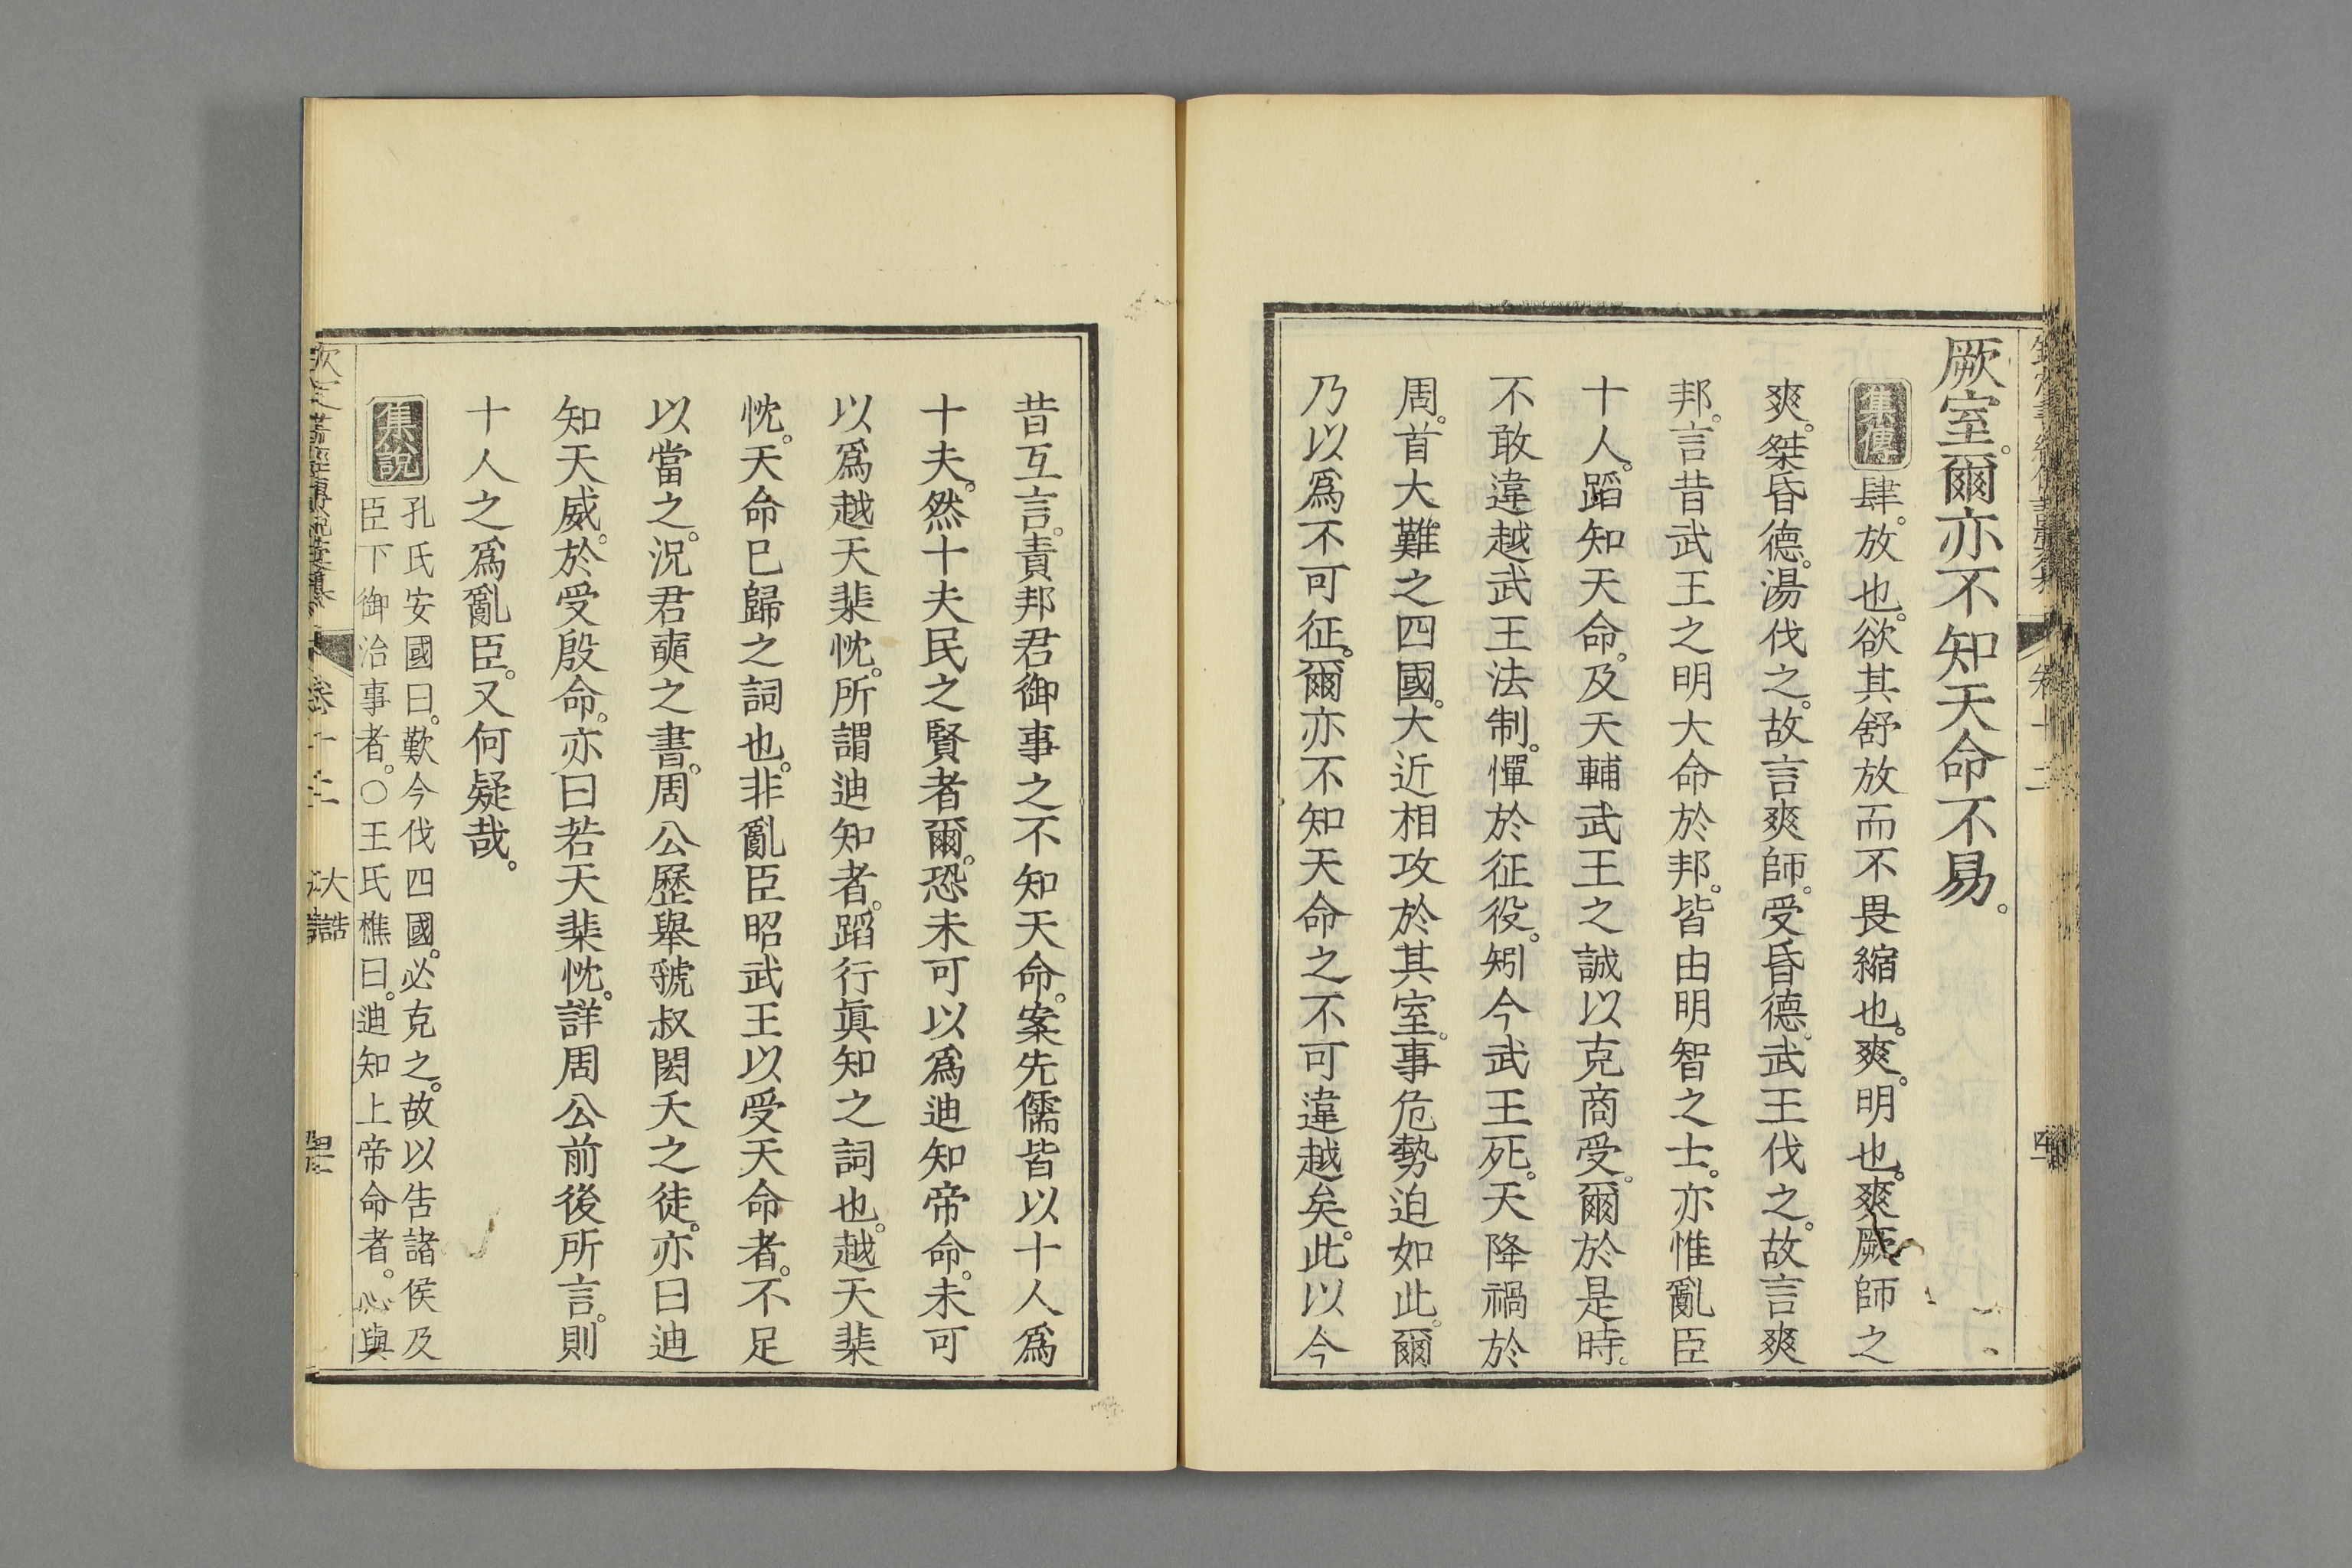 厥室。爾亦不知天命不易。
集傳 肆。放也。欲其舒放而不畏縮也。爽。明也。爽厥師之
爽。桀昏德。湯伐之。故言爽師。受昏德。武王伐之。故言爽
邦。言昔武王之明大命於邦。皆由明智之士。亦惟亂臣
十人。蹈知天命。及天輔武王之誠以克商受。爾於是時。
不敢違越武王法制。憚於征役。矧今武王死。天降禍於
周。首大難之四國。大近相攻於其室。事危勢迫如此。爾
乃以爲不可征。爾亦不知天命之不可違越矣。此以今
昔互言。責邦君御事之不知天命。案先儒皆以十人爲
十夫。然十夫民之賢者爾。恐未可以爲迪知帝命。未可
以爲越天棐忱。所謂迪知者。蹈行眞知之詞也。越天棐
忱。天命已歸之詞也。非亂臣昭武王以受天命者。不足
以當之。況君奭之書。周公歷舉虢叔閎夭之徒。亦曰迪
知天威。於受殷命。亦曰若天棐忱。詳周公前後所言。則
十人之爲亂臣。又何疑哉。
集說 孔氏安國曰。歎今伐四國。必克之。故以告諸侯及
臣下御治事者。○王氏樵曰。迪知上帝命者。心與
欽定書經傳說彙纂 卷十二 大誥